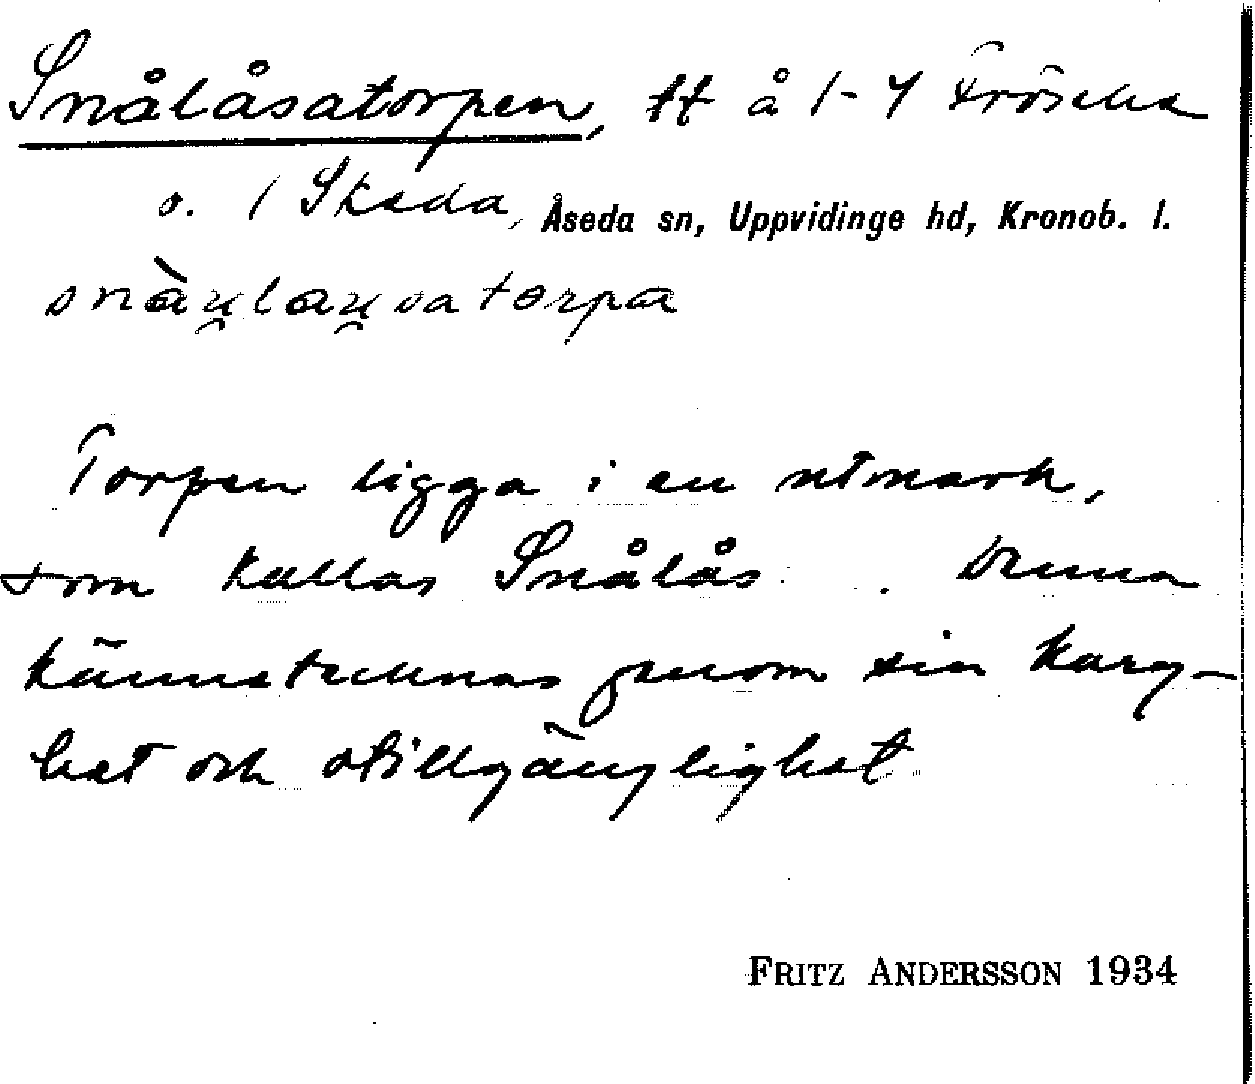 Snålåsatorpen, tt å 1-4 Fröseke
o. 1 Skeda, Åseda sn, Uppvidinge hd, Kronob. l.
snàu̯lau̯satorpa
Torpen ligga i en utmark,
som kallas Snålås. Denna
kännetecknas genom sin karg-
het och otillgänglighet
FRITZ ANDERSSON 1934